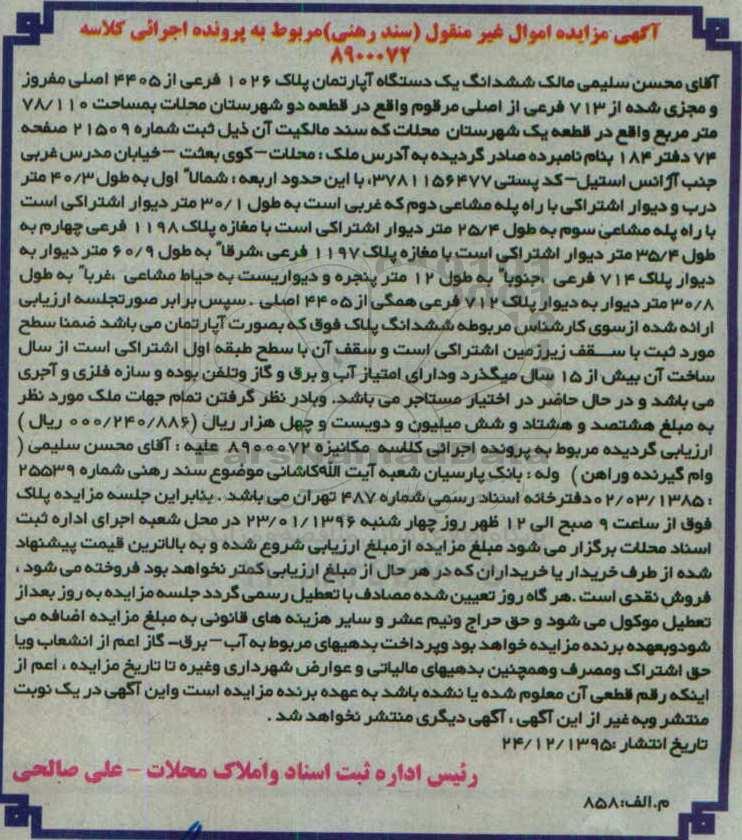 آگهی مزایده اموال غیر منقول (سند رهنی)مربوط به پرونده اجرائی کلاسه
۸۹۰۰۰۷۲
آقای محسن سلیمی مالک ششدانگ یک دستگاه آپارتمان پلاک ۱۰۲۶ فرعی از ۴۴۰۵ اصلی مفروز
و مجزی شده از ۷۱۳ فرعی از اصلی مرقوم واقع در قطعه دو شهرستان محلات بمساحت ۷۸/۱۱۰
متر مربع واقع در قطعه یک شهرستان محلات که سند مالکیت آن ذیل ثبت شماره ۲۱۵۰۹ صفحه
۷۴ دفتر ۱۸۴ بنام نامبرده صادر گردیده به آدرس ملک : محلات – کوی بعثت – خیابان مدرس غربی
جنب آژانس استیل – کد پستی ۳۷۸۱۱۵۶۴۷۷، با این حدود اربعه : شمالاً اول به طول ۴۰/۳ متر
درب و دیوار اشتراکی با راه پله مشاعی دوم که غربی است به طول ۳۰/۱ متر دیوار اشتراکی است
با راه پله مشاعی سوم به طول ۲۵/۴ متر دیوار اشتراکی است با مغازه پلاک ۱۱۹۸ فرعی چهارم به
طول ۳۵/۴ متر دیوار اشتراکی است با مغازه پلاک ۱۱۹۷ فرعی ،شرقاً به طول ۶۰/۹ متر دیوار به
دیوار پلاک ۷۱۴ فرعی ،جنوباً به طول ۱۲ متر پنجره و دیواریست به حیاط مشاعی ،غرباً به طول
۳۰/۸ متر دیوار به دیوار پلاک ۷۱۲ فرعی همگی از ۴۴۰۵ اصلی . سپس برابر صورتجلسه ارزیابی
ارائه شده ازسوی کارشناس مربوطه ششدانگ پلاک فوق که بصورت آپارتمان می باشد ضمنا سطح
مورد ثبت با سقف زیرزمین اشتراکی است و سقف آن با سطح طبقه اول اشتراکی است از سال
ساخت آن بیش از ۱۵ سال میگذرد ودارای امتیاز آب و برق و گاز وتلفن بوده و سازه فلزی و آجری
می باشد و در حال حاضر در اختیار مستاجر می باشد. وبادر نظر گرفتن تمام جهات ملک مورد نظر
به مبلغ هشتصد و هشتاد و شش میلیون و دویست و چهل هزار ریال (۰۰۰/۲۴۰/۸۸۶ ریال )
ارزیابی گردیده مربوط به پرونده اجرائی کلاسه مکانیزه ۸۹۰۰۰۷۲ علیه : آقای محسن سلیمی (
وام گیرنده وراهن ) وله : بانک پارسیان شعبه آیت الله کاشانی موضوع سند رهنی شماره ۲۵۵۳۹
: ۰۲/۰۳/۱۳۸۵ دفترخانه اسناد رسمی شماره ۴۸۷ تهران می باشد . بنابراین جلسه مزایده پلاک
فوق از ساعت ۹ صبح الی ۱۲ ظهر روز چهار شنبه ۲۳/۰۱/۱۳۹۶ در محل شعبه اجرای اداره ثبت
اسناد محلات برگزار می شود مبلغ مزایده ازمبلغ ارزیابی شروع شده و به بالاترین قیمت پیشنهاد
شده از طرف خریدار یا خریداران که در هر حال از مبلغ ارزیابی کمتر نخواهد بود فروخته می شود ،
فروش نقدی است .هر گاه روز تعیین شده مصادف با تعطیل رسمی گردد جلسه مزایده به روز بعداز
تعطیل موکول می شود و حق حراج ونیم عشر و سایر هزینه های قانونی به مبلغ مزایده اضافه می
شودوبعهده برنده مزایده خواهد بود وپرداخت بدهیهای مربوط به آب – برق- گاز اعم از انشعاب ویا
حق اشتراک ومصرف وهمچنین بدهیهای مالیاتی و عوارض شهرداری وغیره تا تاریخ مزایده ، اعم از
اینکه رقم قطعی آن معلوم شده یا نشده باشد به عهده برنده مزایده است واین آگهی در یک نوبت
منتشر وبه غیر از این آگهی ، آگهی دیگری منتشر نخواهد شد .
تاریخ انتشار :۲۴/۱۲/۱۳۹۵
رئیس اداره ثبت اسناد واملاک محلات – علی صالحی
م.الف:۸۵۸